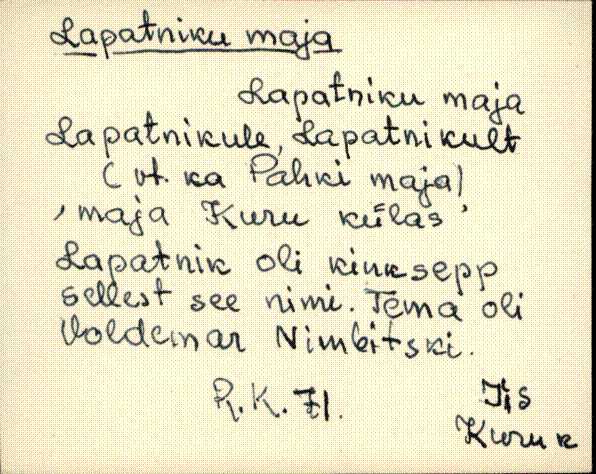 Lapatniku maja
Lapatniku maja
Lapatnikule, Lapatnikult
(vt. ka Pahki maja)
'maja Kuru külas'
Lapatnik oli kinksepp
sellest see nimi. Tema oli
Voldemar Nimbitski.
R.K. 71.
Iis
Kuru k